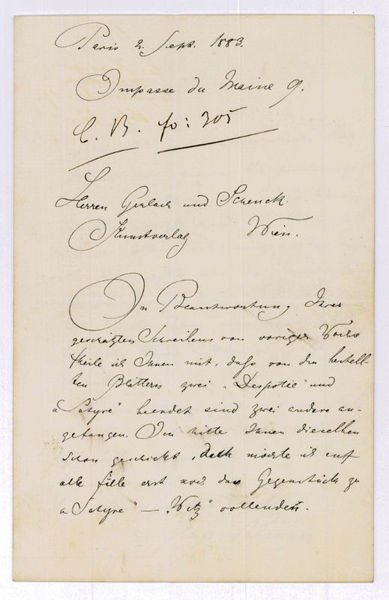 Paris 2. Sept. 1883.
Impasse du Maine 9.
C. B. fo: 305
Herren Gerlach und Schenck
Kunstverlag Wien.
In Beantwortung Ihres
geschätzten Schreibens von voriger Woche
theile ich Ihnen mit, daß von den bestell-
ten Blättern zwei „Despotie" und
„Satyre" beendet sind zwei andere an-
gefangen. Ich hätte Ihnen dieselben
schon geschickt, doch möchte ich auf
alle fälle erst noch das Gegenstück zu
„Satyre" — „Witz" vollenden.